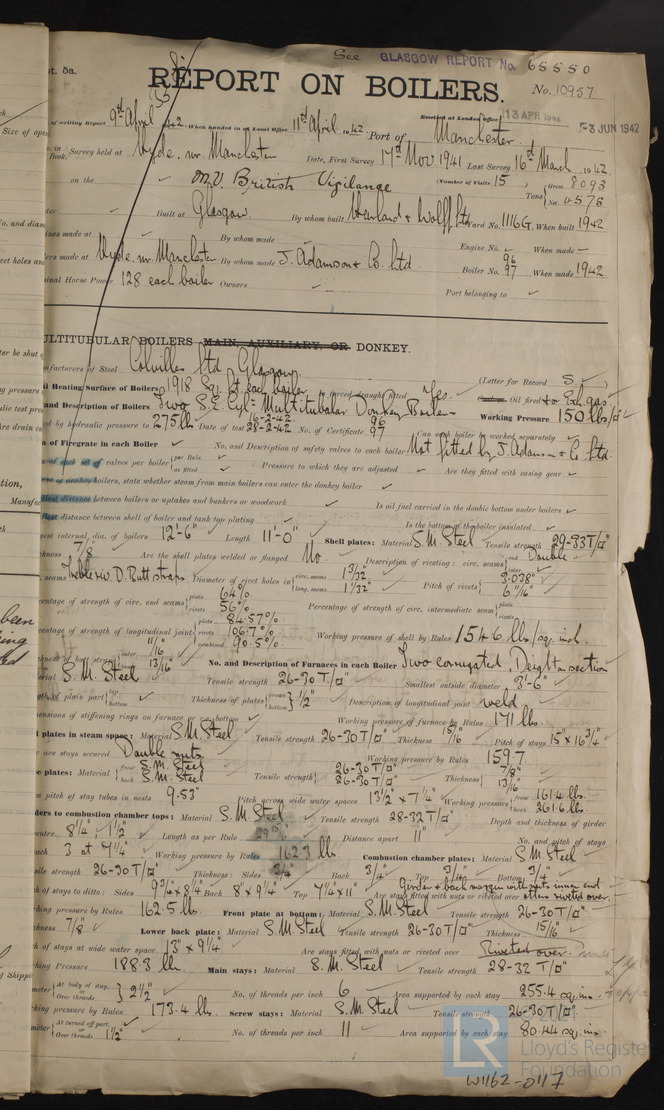 See GLASGOW REPORT No. 65550
pt. 5a.
REPORT ON BOILERS.
No. 10957
13 APR 1942
-3 JUN 1942
of writing Report 9th April 1942 When handed in at Local Office 11th April 1942 Port of Manchester
Received at London Office
Survey held at Hyde, nr. Manchester Date, First Survey 17th Nov. 1941 Last Survey 16th March 1942
on the M.V. British Vigilance (Number of Visits 15) Tons Gross 8093 Net 4576
Built at Glasgow By whom built Harland & Wolff Ltd Yard No. 1116G. When built 1942
made at By whom made Engine No. When made
made at Hyde, nr. Manchester By whom made J. Adamson & Co. Ltd Boiler No. 96 97 When made 1942
Horse Power 128 each boiler Owners
Port belonging to
MULTITUBULAR BOILERS MAIN, AUXILIARY, OR DONKEY.
Manufacturers of Steel Colvilles Ltd Glasgow (Letter for Record S.)
Heating Surface of Boilers 1918 Sq. ft. each boiler forced draught fitted Yes. Oil fired & Exh. gas
and Description of Boilers Two S.E. Cyl. Multitubular Donkey Boilers Working Pressure 150 lbs/□"
by hydraulic pressure to 275 lb Date of test 16-2-42 28-2-42 No. of Certificate 96 97 Can each boiler be worked separately
of Firegrate in each Boiler No. and Description of safety valves to each boiler Not fitted by J. Adamson & Co. Ltd.
of each set of valves per boiler per Rule as fitted Pressure to which they are adjusted Are they fitted with easing gear
of donkey boilers, state whether steam from main boilers can enter the donkey boiler
distance between boilers or uptakes and bunkers or woodwork Is oil fuel carried in the double bottom under boilers
distance between shell of boiler and tank top plating Is the bottom of the boiler insulated
internal dia. of boilers 12'-6" Length 11'-0" Shell plates: Material S.M. Steel Tensile strength 29-33 T/□"
7/8" Are the shell plates welded or flanged No Description of riveting: circ. seams end Double inter.
seams Treble riv. D. Butt straps Diameter of rivet holes in circ. seams 1 3/32" long. seams 1 1/32" Pitch of rivets 3.038" 6 11/16"
Percentage of strength of circ. end seams plate 64% rivets 56% Percentage of strength of circ. intermediate seam plate rivets
Percentage of strength of longitudinal joint plate 84.57% rivets 106.7% combined 90.5% Working pressure of shell by Rules 154.6 lbs/sq. inch
Thickness of butt straps outer 11/16" inner 13/16" No. and Description of Furnaces in each Boiler Two corrugated, Deighton section
Material S.M. Steel Tensile strength 26-30 T/□" Smallest outside diameter 3'-6"
Length of plain part top bottom Thickness of plates crown bottom 1/2" Description of longitudinal joint weld
Dimensions of stiffening rings on furnace or c.c. bottom Working pressure of furnace by Rules 171 lbs
plates in steam space: Material S.M. Steel Tensile strength 26-30 T/□" Thickness 15/16" Pitch of stays 15" x 16 3/4"
are stays secured Double nuts Working pressure by Rules 159.7
plates: Material front S.M. Steel back S.M. Steel Tensile strength 26-30 T/□" 26-30 T/□" Thickness 7/8" 13/16"
pitch of stay tubes in nests 9.53" Pitch across wide water spaces 13 1/2" x 7 1/4" Working pressure front 161.4 lbs. back 261.6 lbs.
Girders to combustion chamber tops: Material S.M. Steel Tensile strength 28-32 T/□" Depth and thickness of girder
centre 8 1/4", 1 1/2" Length as per Rule 29 15/16" Distance apart 11" No. and pitch of stays
each 3 at 7 1/4" Working pressure by Rules 162.3 lb Combustion chamber plates: Material S.M. Steel
Tensile strength 26-30 T/□" Thickness: Sides 3/4" Back 3/4" Top 3/4" Bottom 3/4"
Pitch of stays to ditto: Sides 9 3/4" x 8 1/4" Back 8" x 9 1/4" Top 7 1/4" x 11" Are stays fitted with nuts or riveted over Girder & back margin with nuts inner end others riveted over.
Working pressure by Rules 162.5 lb. Front plate at bottom: Material S.M. Steel Tensile strength 26-30 T/□"
Thickness 7/8" Lower back plate: Material S.M. Steel Tensile strength 26-30 T/□" Thickness 15/16"
Pitch of stays at wide water space 13" x 9 1/4" Are stays fitted with nuts or riveted over Riveted over.
Working Pressure 188.3 lb. Main stays: Material S.M. Steel Tensile strength 28-32 T/□"
Diameter At body of stay, Over threads 2 1/2" No. of threads per inch 6 Area supported by each stay 255.4 sq. ins.
Working pressure by Rules 173.4 lb. Screw stays: Material S.M. Steel Tensile strength 26-30 T/□"
Diameter At turned off part, Over threads 1 1/2" No. of threads per inch 11 Area supported by each stay 80.44 sq. ins
LR
Lloyd's Register
Foundation
W1162-0117